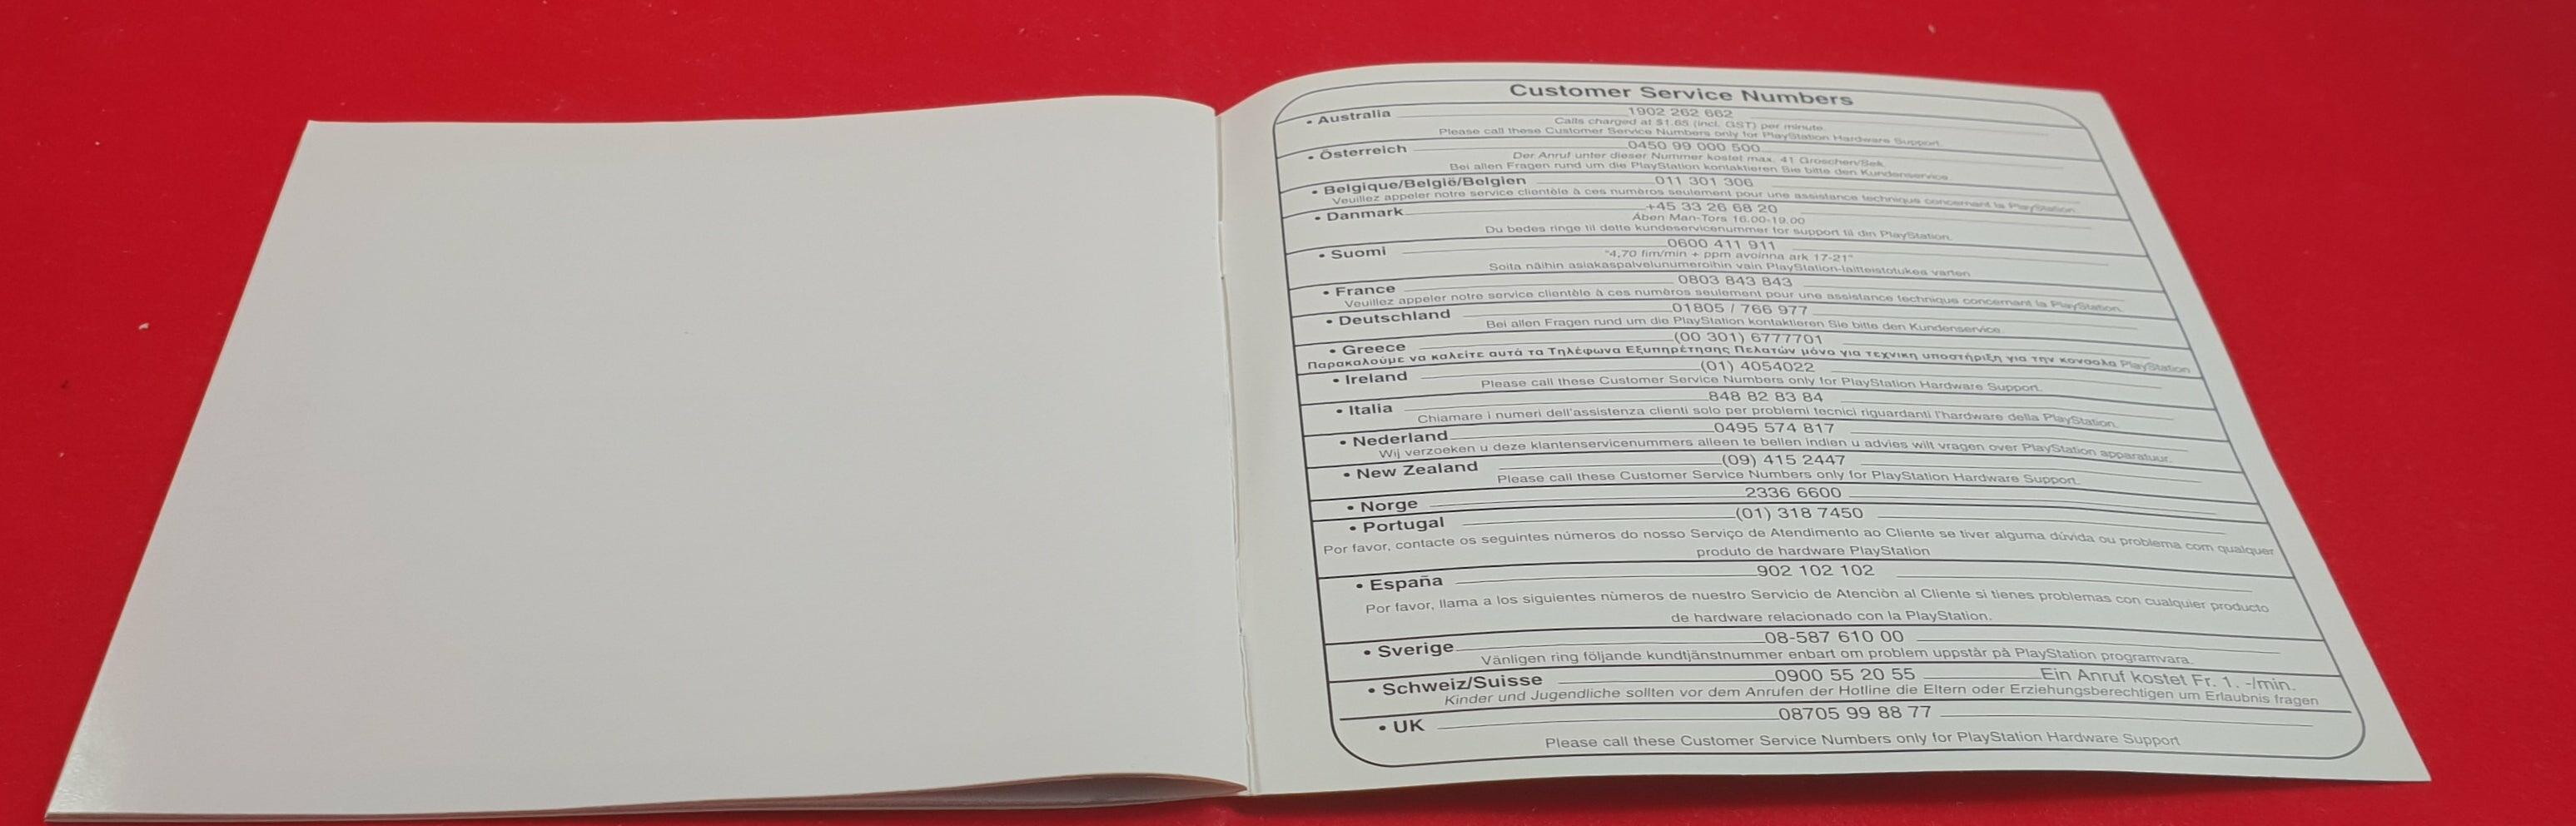 Customer Service Numbers
• Australia 1902 262 662
Calls charged at $1.65 (incl. GST) per minute.
Please call these Customer Service Numbers only for PlayStation Hardware Support.
• Österreich 0450 99 000 500
Der Anruf unter dieser Nummer kostet max. 41 Groschen/Sek.
Bei allen Fragen rund um die PlayStation kontaktieren Sie bitte den Kundenservice
• Belgique/België/Belgien 011 301 306
Veuillez appeler notre service clientèle à ces numèros seulement pour une assistance technique concernant la PlayStation.
• Danmark +45 33 26 68 20
Åben Man-Tors 16.00-19.00
Du bedes ringe til dette kundeservicenummer for support til din PlayStation.
• Suomi 0600 411 911
"4,70 fim/min + ppm avoinna ark 17-21"
Soita näihin asiakaspalvelunumeroihin vain PlayStation-laitteistotukea varten
• France 0803 843 843
Veuillez appeler notre service clientèle à ces numèros seulement pour une assistance technique concernant la PlayStation.
• Deutschland 01805 / 766 977
Bei allen Fragen rund um die PlayStation kontaktieren Sie bitte den Kundenservice.
• Greece (00 301) 6777701
Παρακαλούμε να καλείτε αυτά τα Τηλέφωνα Εξυπηρέτησης Πελατών μόνο για τεχνικη υποστήριξη για την κονσολα PlayStation
• Ireland (01) 4054022
Please call these Customer Service Numbers only for PlayStation Hardware Support.
• Italia 848 82 83 84
Chiamare i numeri dell'assistenza clienti solo per problemi tecnici riguardanti l'hardware della PlayStation.
• Nederland 0495 574 817
Wij verzoeken u deze klantenservicenummers alleen te bellen indien u advies wilt vragen over PlayStation apparatuur.
• New Zealand (09) 415 2447
Please call these Customer Service Numbers only for PlayStation Hardware Support.
• Norge 2336 6600
• Portugal (01) 318 7450
Por favor, contacte os seguintes números do nosso Serviço de Atendimento ao Cliente se tiver alguma dúvida ou problema com qualquer
produto de hardware PlayStation
• España 902 102 102
Por favor, llama a los siguientes nùmeros de nuestro Servicio de Atenciòn al Cliente si tienes problemas con cualquier producto
de hardware relacionado con la PlayStation.
• Sverige 08-587 610 00
Vänligen ring följande kundtjänstnummer enbart om problem uppstår på PlayStation programvara.
• Schweiz/Suisse 0900 55 20 55 Ein Anruf kostet Fr. 1. -/min.
Kinder und Jugendliche sollten vor dem Anrufen der Hotline die Eltern oder Erziehungsberechtigen um Erlaubnis fragen
• UK 08705 99 88 77
Please call these Customer Service Numbers only for PlayStation Hardware Support